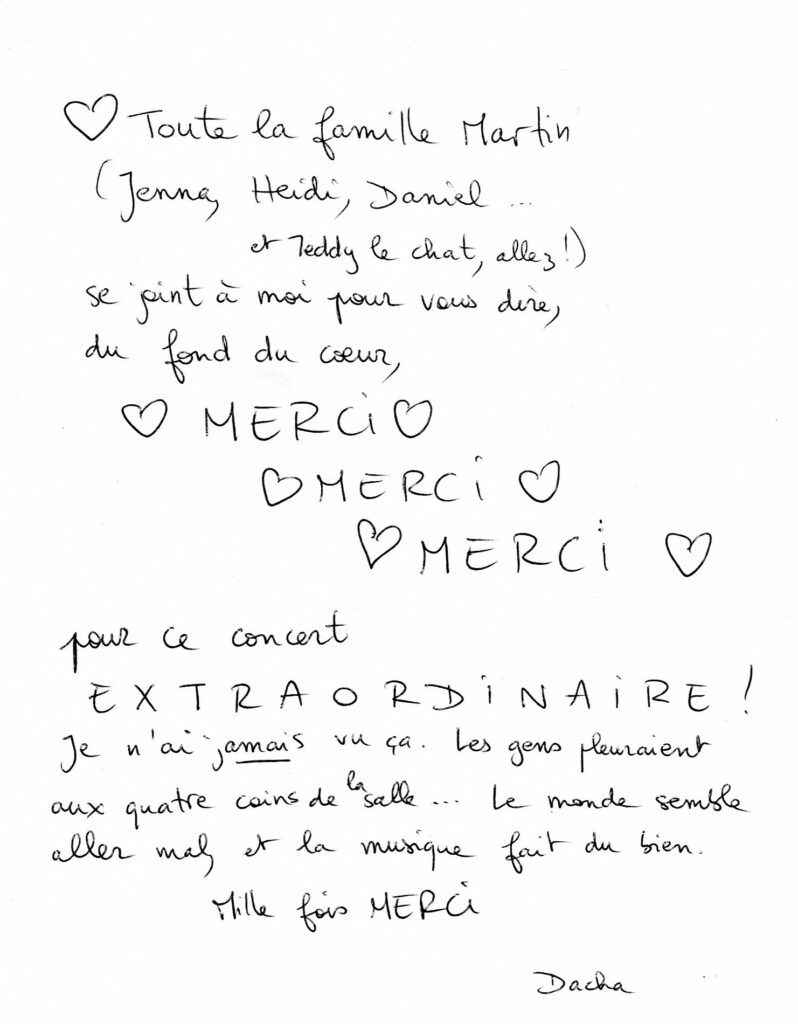 ♡ Toute la famille Martin
(Jenna, Heidi, Daniel ...
et Teddy le chat, allez !)
se joint à moi pour vous dire,
du fond du cœur,
♡ MERCi ♡
♡ MERCi ♡
♡ MERCi ♡
pour ce concert
EXTRAORDiNAiRE !
Je n'ai jamais vu ça. Les gens pleuraient
aux quatre coins de la salle ... Le monde semble
aller mal, et la musique fait du bien.
Mille fois MERCi
Dacha